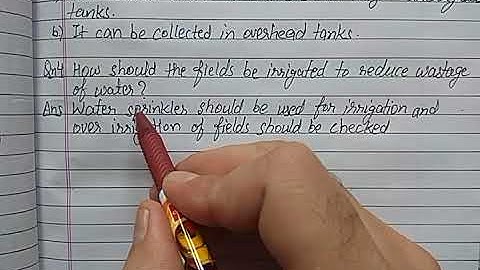 tanks.
b) It can be collected in overhead tanks.
Qn4 How should the fields be irrigated to reduce wastage
of water?
Ans Water sprinkler should be used for irrigation and
over irrigation of fields should be checked